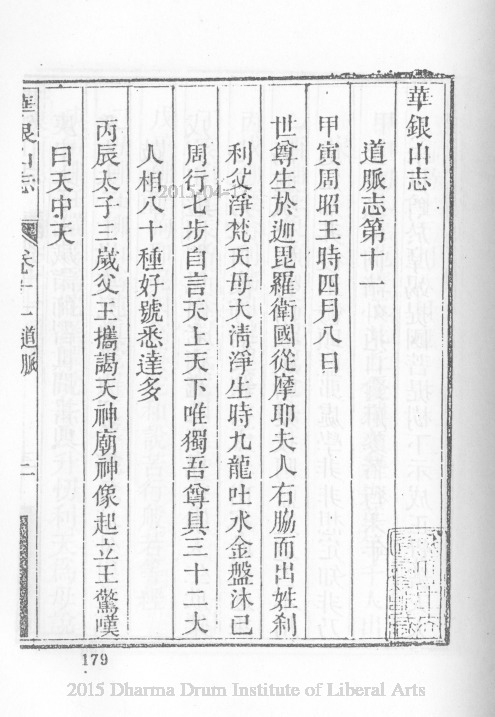 華銀山志
道脈志第十一
甲寅周昭王時四月八日
世尊生於迦毘羅衛國從摩耶夫人右脇而出姓刹
利父淨梵天母大清淨生時九龍吐水金盤沐已
周行七步自言天上天下唯獨吾尊具三十二大
人相八十種好號悉達多
丙辰太子三歲父王攜謁天神廟神像起立王驚嘆
曰天中天
華銀山志 卷十一 道脈
179
2015 Dharma Drum Institute of Liberal Arts